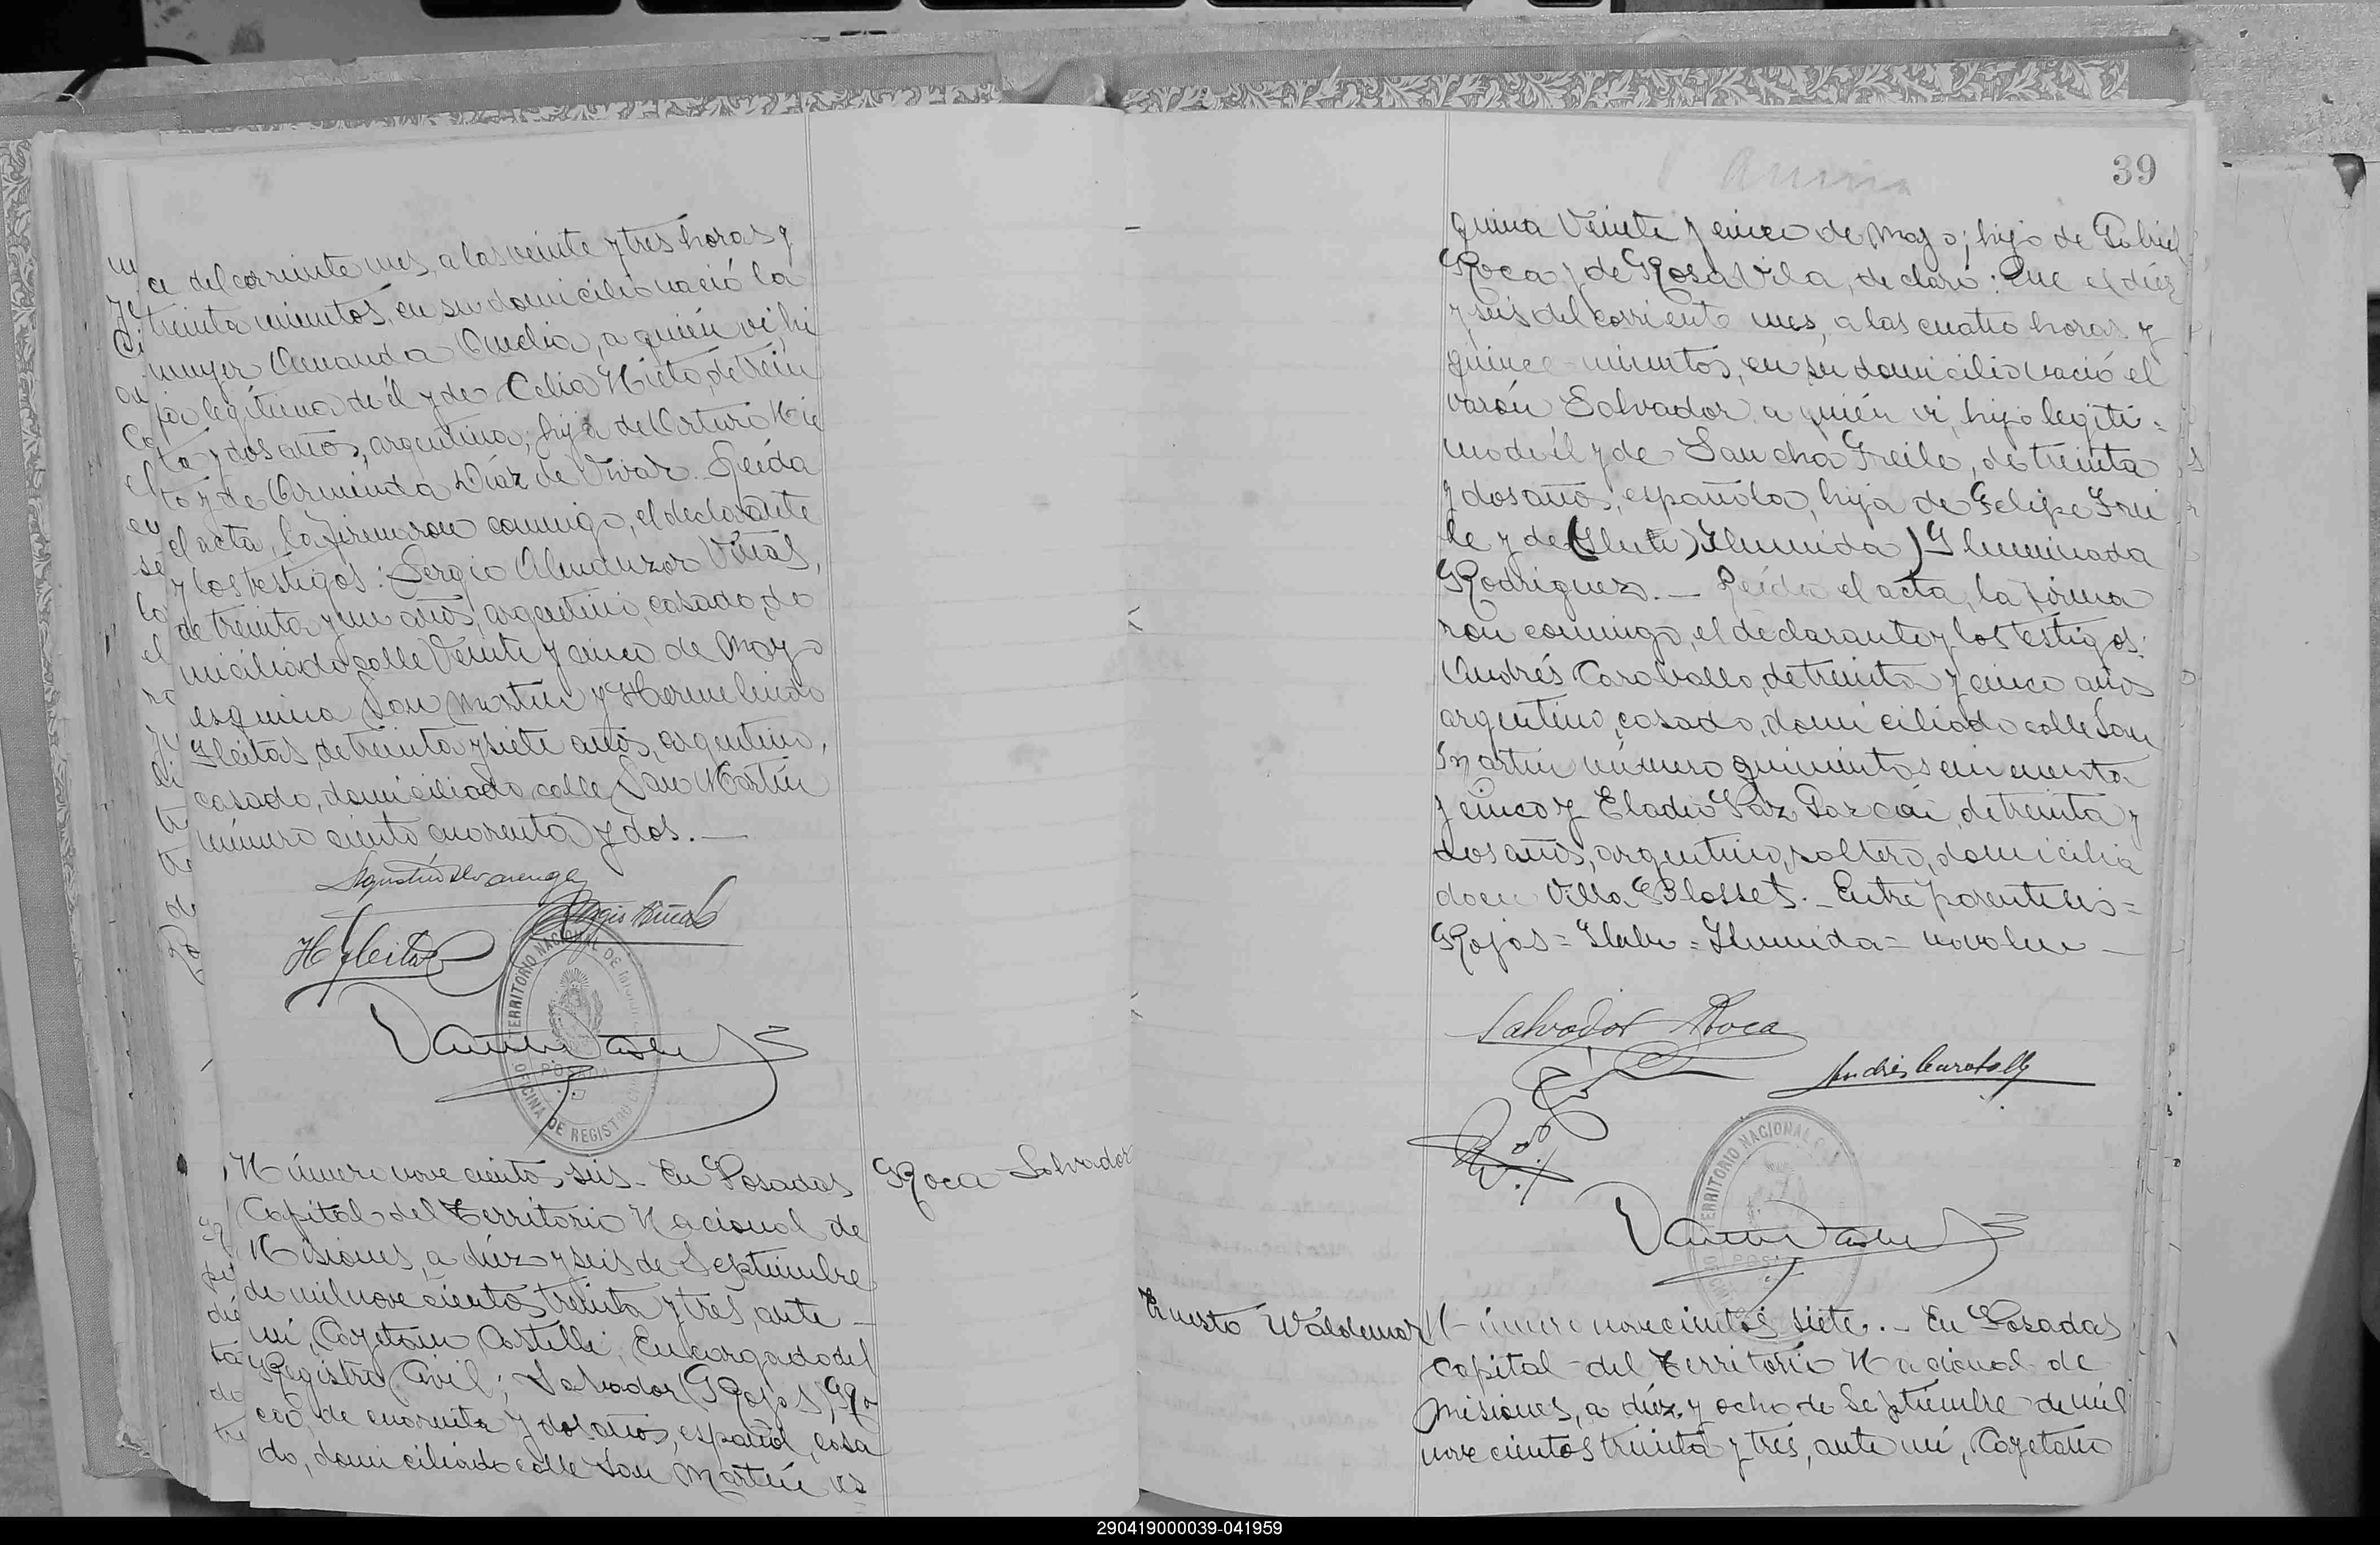 ce del corriente mes, a las veinte y tres horas y
treinta minutos, en su domicilio nació la
mujer Amanda Amelia, a quién vi, hi
ja legítima de él y de Celia Nieto, de trein
ta y dos años, argentina, hija de Arturo Nie
to y de Arminda Díaz de Vivar. Leída
el acta, la firmaron conmigo, el declarante
y los testigos: Sergio Almanzor Viñas,
de treinta y un años, argentino, casado, do
miciliado calle Veinte y cinco de Mayo
esquina San Martín y Hermelindo
Fleitas, de treinta y siete años, argentino,
casado, domiciliado calle San Martín
número ciento cuarenta y dos.—
H Fleitas
TERRITORIO NACIONAL DE
POSADAS
OFICINA DE REGISTRO
Número novecientos seis.- En Posadas
Capital del Territorio Nacional de
Misiones, a diéz y seis de Septiembre
de mil novecientos treinta y tres, ante
mí, Cayetano Castelli, Encargado del
Registro Civil; Salvador (Rojas) Ro
ca, de cuarenta y dos años, español, casa
do, domiciliado calle San Martín es
Roca Salvador
39
quina Veinte y cinco de Mayo; hijo de Gabriel
Roca y de Rosa Vila, declaró: Que el diéz
y seis del corriente mes, a las cuatro horas y
quince minutos, en su domicilio nació el
varón Salvador a quién vi, hijo legíti-
mo de él y de Sancha Freile, de treinta
y dos años, española, hija de Felipe Frei
le y de (Ilub) Ilumida) Iluminada
Rodriguez.— Leída el acta, la firma
ron conmigo, el declarante y los testigos:
Andrés Caraballo, de treinta y cinco años
argentino, casado, domiciliado calle San
Martín número quinientos cincuenta
y cinco y Eladio Paz García, de treinta y
dos años, argentino, soltero, domicilia
do en Villa Blosset.- Entre parentesis=
Rojas= Ilub= Ilumida= no vale—
Salvador Roca
Andrés Caraballo
TERRITORIO NACIONAL
Ernesto Waldemar
Número novecientos siete.- En Posadas
Capital del Territorio Nacional de
Misiones, a diéz y ocho de Septiembre de mil
novecientos treinta y tres, ante mí, Cayetano
290419000039-041959